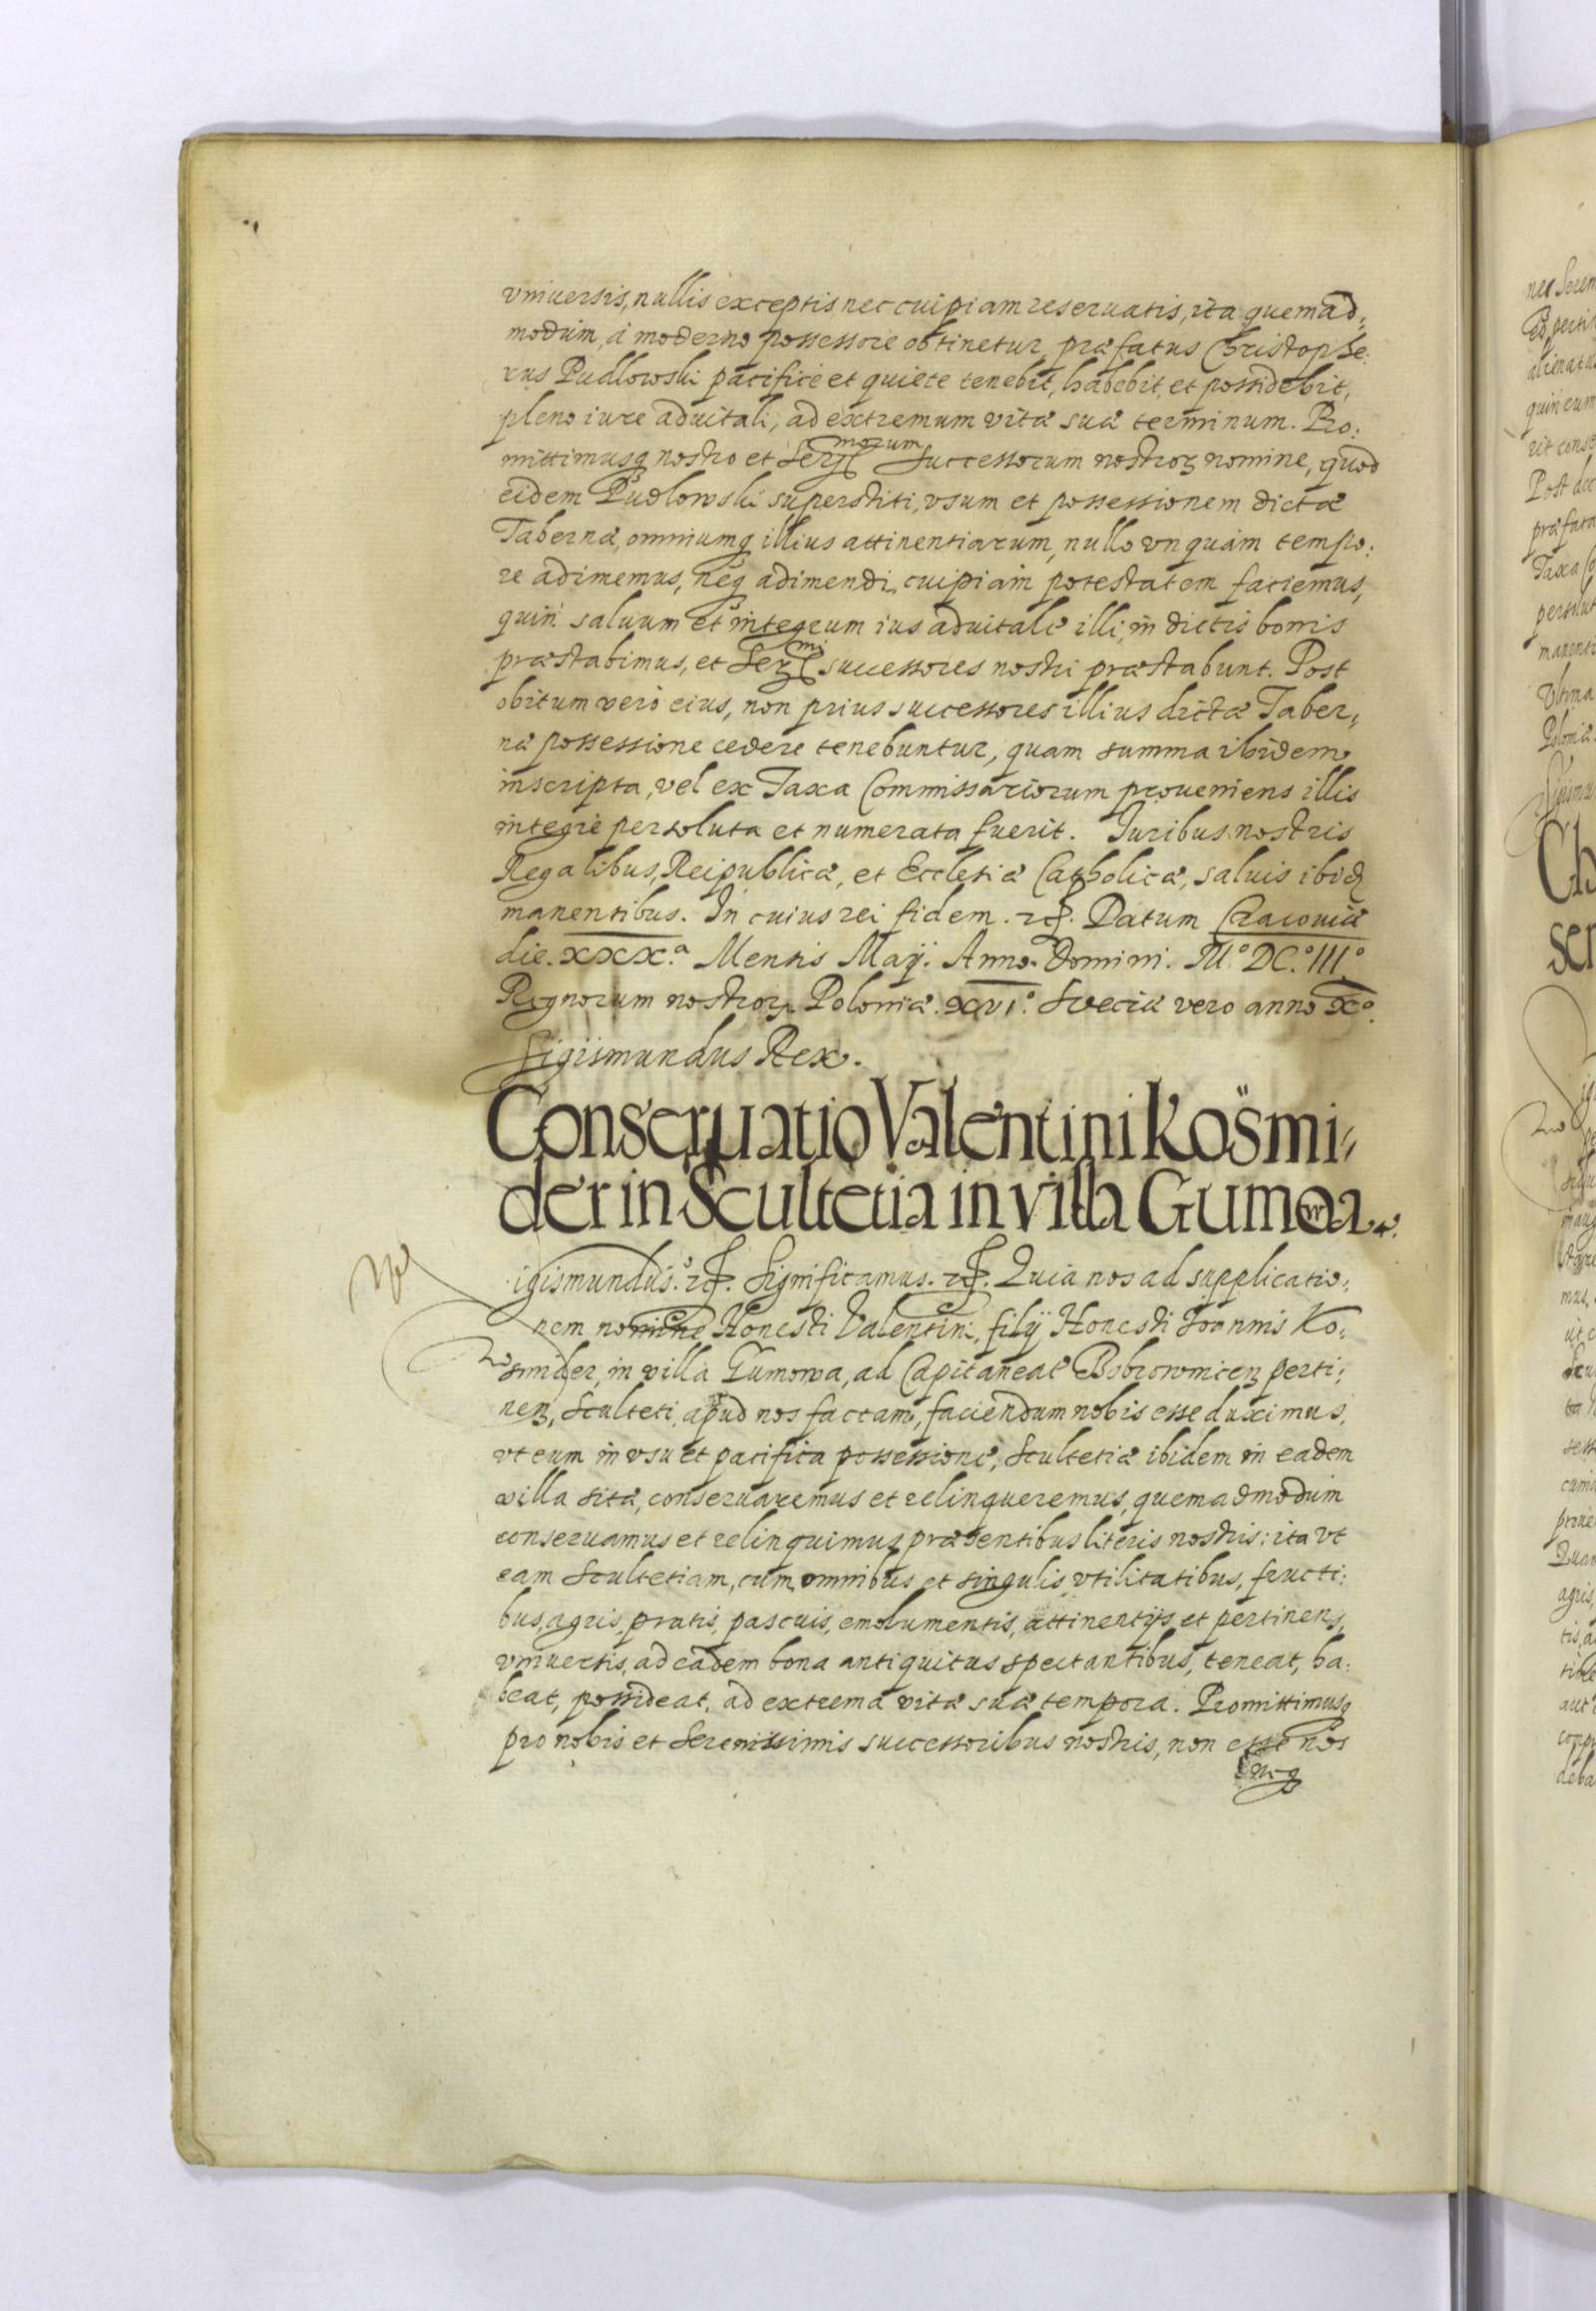 vniuersis, nullis exceptis nec cuipiam reseruatis, ita quemad,
modum, à moderno possessore obtinetur, præfatus Christophe:
rus Pudlowski pacifice et quiete tenebit, habebit, et possidebit,
pleno iure aduitali, ad extremum vitæ suæ terminum. Pro:
mittimusq nostro et Sermorum Successorum nostroꝝ nomine, quod
eidem Pudlowski superstiti, vsum et possessionem dictæ
Tabernæ, omniumq illius attinentiarum, nullo vnquam tempo:
re adimemus, neq adimendi cuipiam potestatem faciemus,
quin saluum et integrum ius aduitale illi, in dictis bonis
præstabimus, et Sermi successores nostri præstabunt. Post
obitum vero eius, non prius successores illius dictæ Taber,
næ possessione cedere tenebuntur, quam summa ibidem
inscripta, vel ex Taxa Commissariorum proueniens illis
integre persoluta et numerata fuerit. Iuribus nostris
Regalibus, Reipublicæ, et Ecclesiæ Catholicæ, saluis ibid
manentibus. In cuius rei fidem. etc. Datum Cracouiæ
die. XXX.a Mensis Maij. Anno. Domini. M.o DC.o III.o
Regnorum nostroꝝ Poloniæ. XVI.o Sveciæ vero anno X.o
Sigismundus Rex.
Conseruatio Valentini Kosmi,
der in Scultetia in villa Gumowa.
igismundus. etc. Significamus. etc. Quia nos ad supplicatio,
nem nomine Honesti Valentini, filij Honesti Joannis Ko,
smider, in villa Gumowa, ad Capitaneat Bobrownicen perti,
nen, Sculteti, apud nos factam, faciendum nobis esse duximus,
vt eum in vsu et pacifica possessione, Scultetiæ ibidem in eadem
villa sitæ, conseruaremus et relinqueremus, quemadmodum
conseruamus et relinquimus præsentibus literis nostris: ita vt
eam Scultetiam, cum omnibus et singulis vtilitatibus, fructi:
bus, agris, pratis, pascuis, emolumentis, attinentijs et pertinens,
vniuersis, ad eadem bona antiquitus spectantibus, teneat, ha,
beat, possideat, ad extrema vitæ suæ tempora. Promittimusq
pro nobis et Serenissimis successoribus nostris, non esse nos